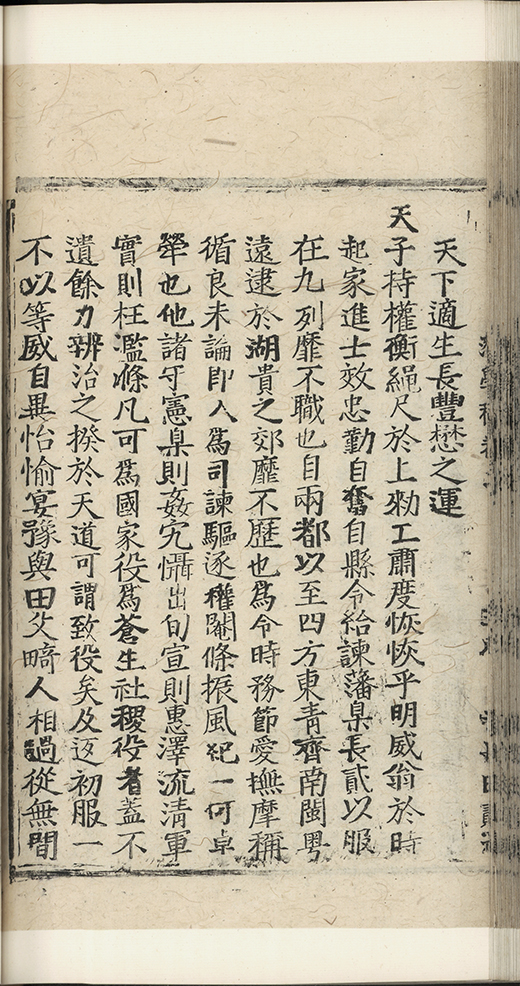 天下適生長豐懋之運
天子持權衡繩尺於上勑工肅度恢恢乎明威翁於時
起家進士效忠勤自奮自縣令給諫藩臬長貳以服
在九列靡不職也自兩都以至四方東青齊南閩粵
遠逮於湖貴之郊靡不歷也為令時務節愛撫摩稱
循良未論即入為司諫驅逐權閹條振風紀一何卓
犖也他諸守憲臬則姦宄懾出旬宣則惠澤流清軍
實則枉濫滌凡可為國家役為蒼生社稷役者蓋不
遺餘力辨治之揆於天道可謂致役矣及返初服一
不以等威自異怡愉宴豫與田父畸人相過從無間